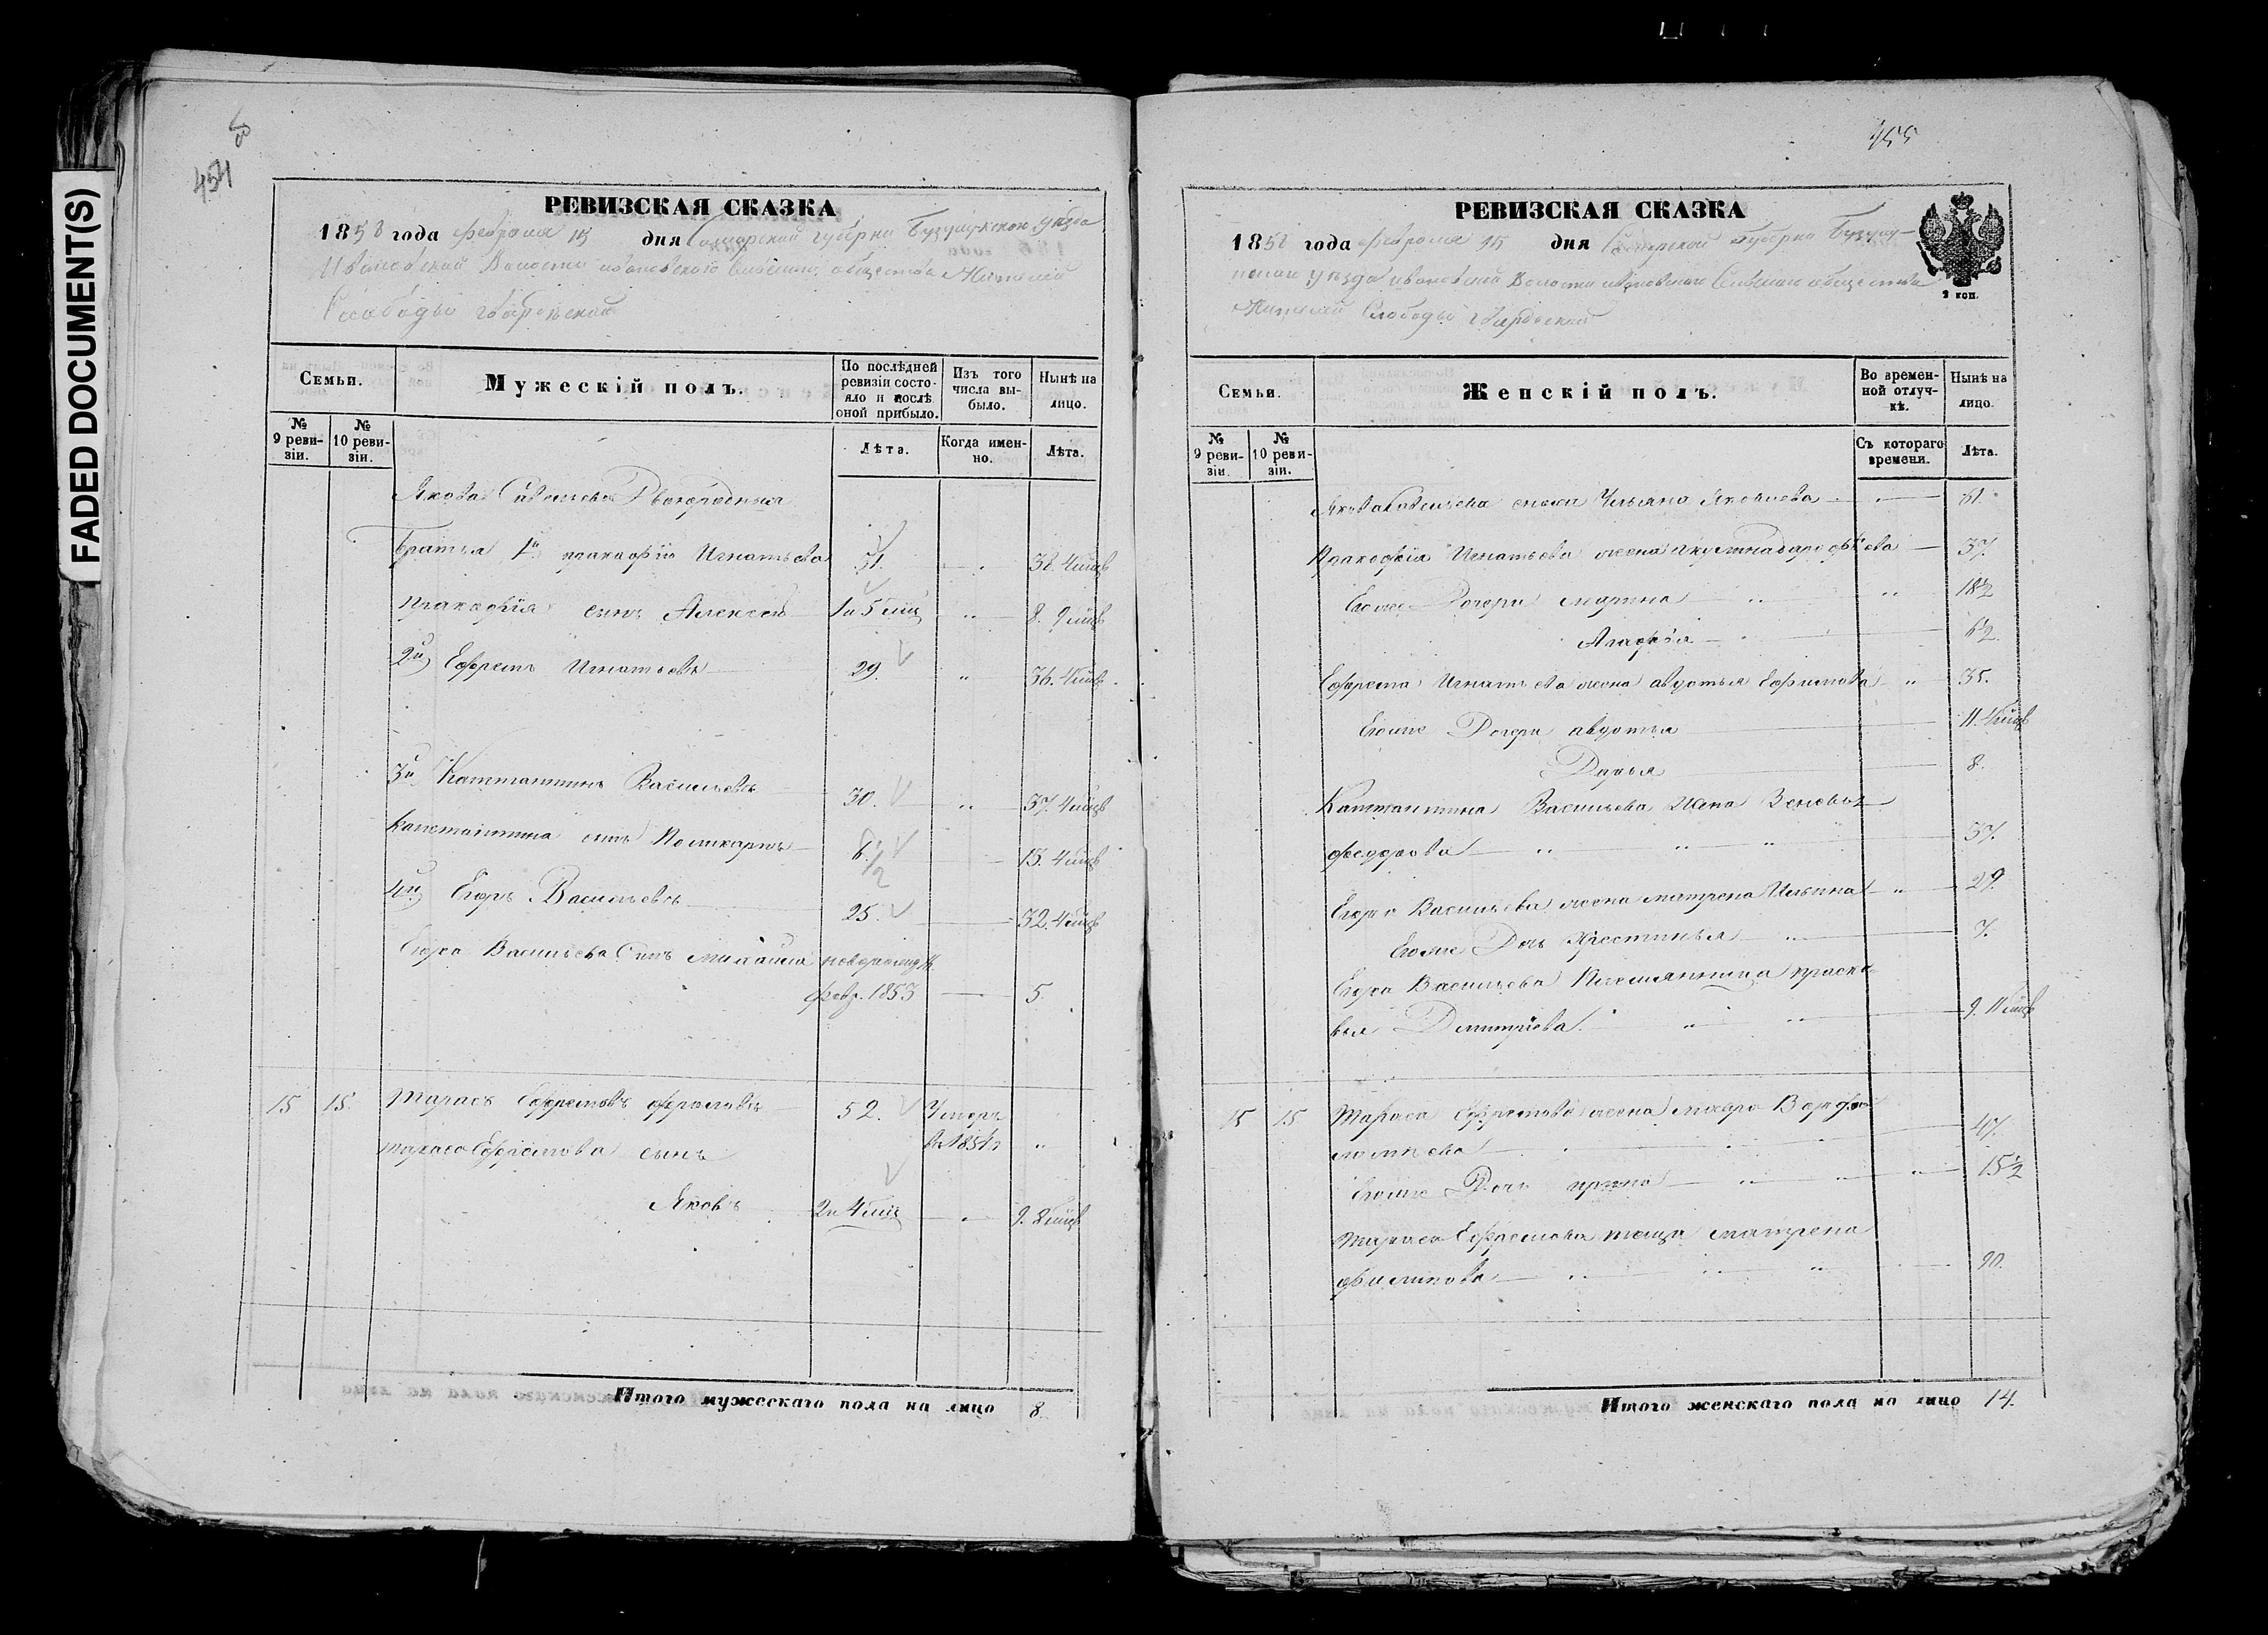 FADED DOCUMENT(S)
8
454
РЕВИЗСКАЯ СКАЗКА
1858 года февраля 15 дня Самарской губерни Бузулукскои уезда
Ивановской Волости ивановского Сельского общества Жителей
Слободы Гвардейской
Семьи.
Мужескій полъ.
По послѣдней ревизіи состояло и послѣ оной прибыло.
Изъ того числа выбыло.
Нынѣ на лицо.
№ 9 ревизіи.
№ 10 ревизіи.
Лѣта.
Когда именно.
Лѣта.
Якова Савельева Двоюродныя
братья 1й прокофiй Игнатьевъ 31. 38. 4 мцв
прокофiя сынъ Алексей 1 и 5 мц 8. 9 мцв
2й Ефремъ Игнатьевъ 29. 36. 4 мцв
3й Константинъ Васильевъ 30. 37. 4 мцв
Константина сынъ Поликарпъ 6 1/2 13. 4 мцв
4й Егоръ Васильевъ 25. 32. 4 мцв
Егора Васильева Сынъ михаила новорожд
февр. 1853 5.
15 15. Тарасъ Ефремовъ фроловъ 52. Умеръ
тараса Ефремова сынъ въ 1851
Яковъ 2 и 4 мц 9. 8 мцв
Итого мужескаго пола на лицо 8.
455
РЕВИЗСКАЯ СКАЗКА
1858 года февраля 15 дня Самарской Губерни Бузулу-
кскаи уезда ивановской Волости ивановскаго Сельскаго общества
Жителей Слободы Гвардейской
2 коп.
Семьи.
Женскій полъ.
Во временной отлучкѣ.
Нынѣ на лицо.
№ 9 ревизіи.
№ 10 ревизіи.
Съ котораго времени.
Лѣта.
Якова Савельева Ульяна Яковлева 61.
Прокофiя Игнатьева жена 37.
Егоже Дочери марина 18 1/2
Агафiя 6 1/2.
Ефрема Игнатьева жена авдотья Ефимова 35.
Егоже Дочери авдотья 11. 4 мцв
Дарья 8.
Константина Васильева Жена
федорова 37.
Егора Васильева жена матрена Ильина 29.
Егоже Дочь Хрестинья 7.
Егора Васильева Племянница праско-
вья Дмитрiева 9. 11 мцв
15 15 Тараса Ефремова жена мавра Варфо-
ломеева 47.
Егоже Дочь ирина 15 1/2
Тараса Ефремова теща матрена
филипова 90.
Итого женскаго пола на лицо 14.